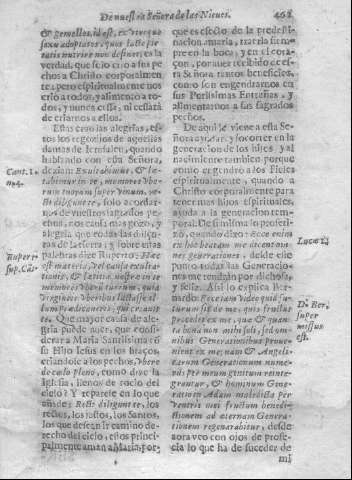 De nuestra Señora de las Nieves. 468
& gemellos, id est, ex vtroque
sexu adoptatos, quos lacte pie
tatis nutrire non desinet; es la
verdad, que solo crio a sus pe-
chos a Christo corporalmen
te; pero espiritualmente nos
crio a todos, y alimentò a to-
dos, y nunca cessa, ni cessarà
de criarnos a ellos.
Estas eran las alegrias, es-
tos los regozijos de aquellas
damas de Ierusalen, quando
hablando con esta Señora,
dezian: Exultabimus, & lę-
tabimur in te, memores vbe-
rum tuorum super vinum, re-
cti diligunt te, solo acordar-
nos de vuestros sagrados pe-
chos, nos causa mas gozo, y
alegria que todas las dulçu-
ras de la tierra; y sobre estas
palabras dize Ruperto: Hæc
est materia, vel causa exulta-
tionis, & lætitiæ nostræ in te
memores vberum tuorum, quia
virgineis vberibus lactasse il-
lum prædicaueris, qui te auit
te. Que mayor causa de ale-
gria puede auer, que consi-
derar a Maria Santissima cõ
su Hijo Iesus en los braços,
criandole a los pechos, Vbere
de cœlo pleno, como dize la
Iglesia, llenos de rocio del
cielo? Y reparese en lo que
añade: Recti diligunt te, los
rectos, los justos, los Santos,
los que dessean ir camino de-
recho del cielo, estos princi-
palmente aman a Maria, por-
que es efecto de la predesti-
nacion, amarla, traerla siem-
pre en la boca, y en el cora-
çon, por auer recibido de es-
ta Señora tantos beneficios,
como son engendrarnos en
sus Purissimas Entrañas, y
alimentarnos a sus sagrados
pechos.
De aqui le viene a esta Se-
ñora ayudar, y socorrer en la
generacion de los hijos, y al
nacimiento tambien porque
como engendrò a los Fieles
espiritualmente, quando a
Christo corporalmente para
tener mas hijos espirituales,
ayuda a la generacion tem-
poral. De si misma lo profeti-
zò, quando dixo: Ecce enim
ex hoc beatam me dicent om-
nes generationes, desde este
punto todas las Generacio-
nes me tendràn por dichosa,
y feliz. Assi lo explica Ber-
nardo:
bona non mihi soli, sed om-
nibus Generationibus proue-
nient ex me; nam & Angelo-
rum Generationum nume-
rus per meum genitum reinte-
grantur, & hominum Gene-
ratio in Adam maledicta per
ventris mei fructum benedi-
ctionem ad æternam Genera-
tionem regenerabitur, desde
aora veo con ojos de profe-
cia lo que ha de suceder de
mi
Cant. 1.
Rupert.
sup. Cãt.
Lucæ 1.
D. Ber.
super
missus
est.